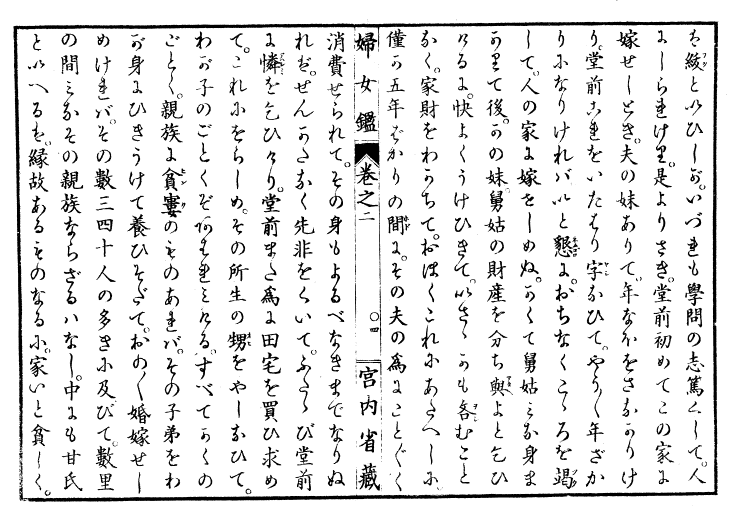 を紱といひしが。いづれも學問の志篤くして。人
にしられけり。是よりさき。堂前初めてこの家に
嫁せしとき。夫の妹ありて。年なほをさなかりけ
り。堂前これをいたはり字なひて。やう〱年ざか
りになりければいと懇に。おちなくこゝろを竭
して。人の家に嫁をしめぬ。かくて舅姑みな身ま
かりて後。かの妹。舅姑の財産を分ち與よと乞ひ
けるに。快よくうけひきて。いさゝかも吝むこと
なく。家財をわかちて。おほくこれにあたへしに。
僅か五年ばかりの間に。その夫の爲にこと〲く
婦女鑑 卷之二 〇四 宮内省藏
消費せられて。その身もよるべなきまでなりぬ
れば。せんかたなく先非をくいて。ふたゝび堂前
に憐を乞ひけり。堂前また爲に田宅を買ひ求め
て。これにをらしめ。その所生の甥をやしなひて。
わが子のごとくぞあはれみける。すべてかくの
ごとく。親族に貧窶のものあれば。その子弟をわ
が身にひきうけて養ひそだて。おの〱婚嫁せし
めければ。その數三四十人の多きに及びて。數里
の間みなその親族ならざるはなし。中にも甘氏
といへるを。縁故あるものなるに。家いと貧しく。